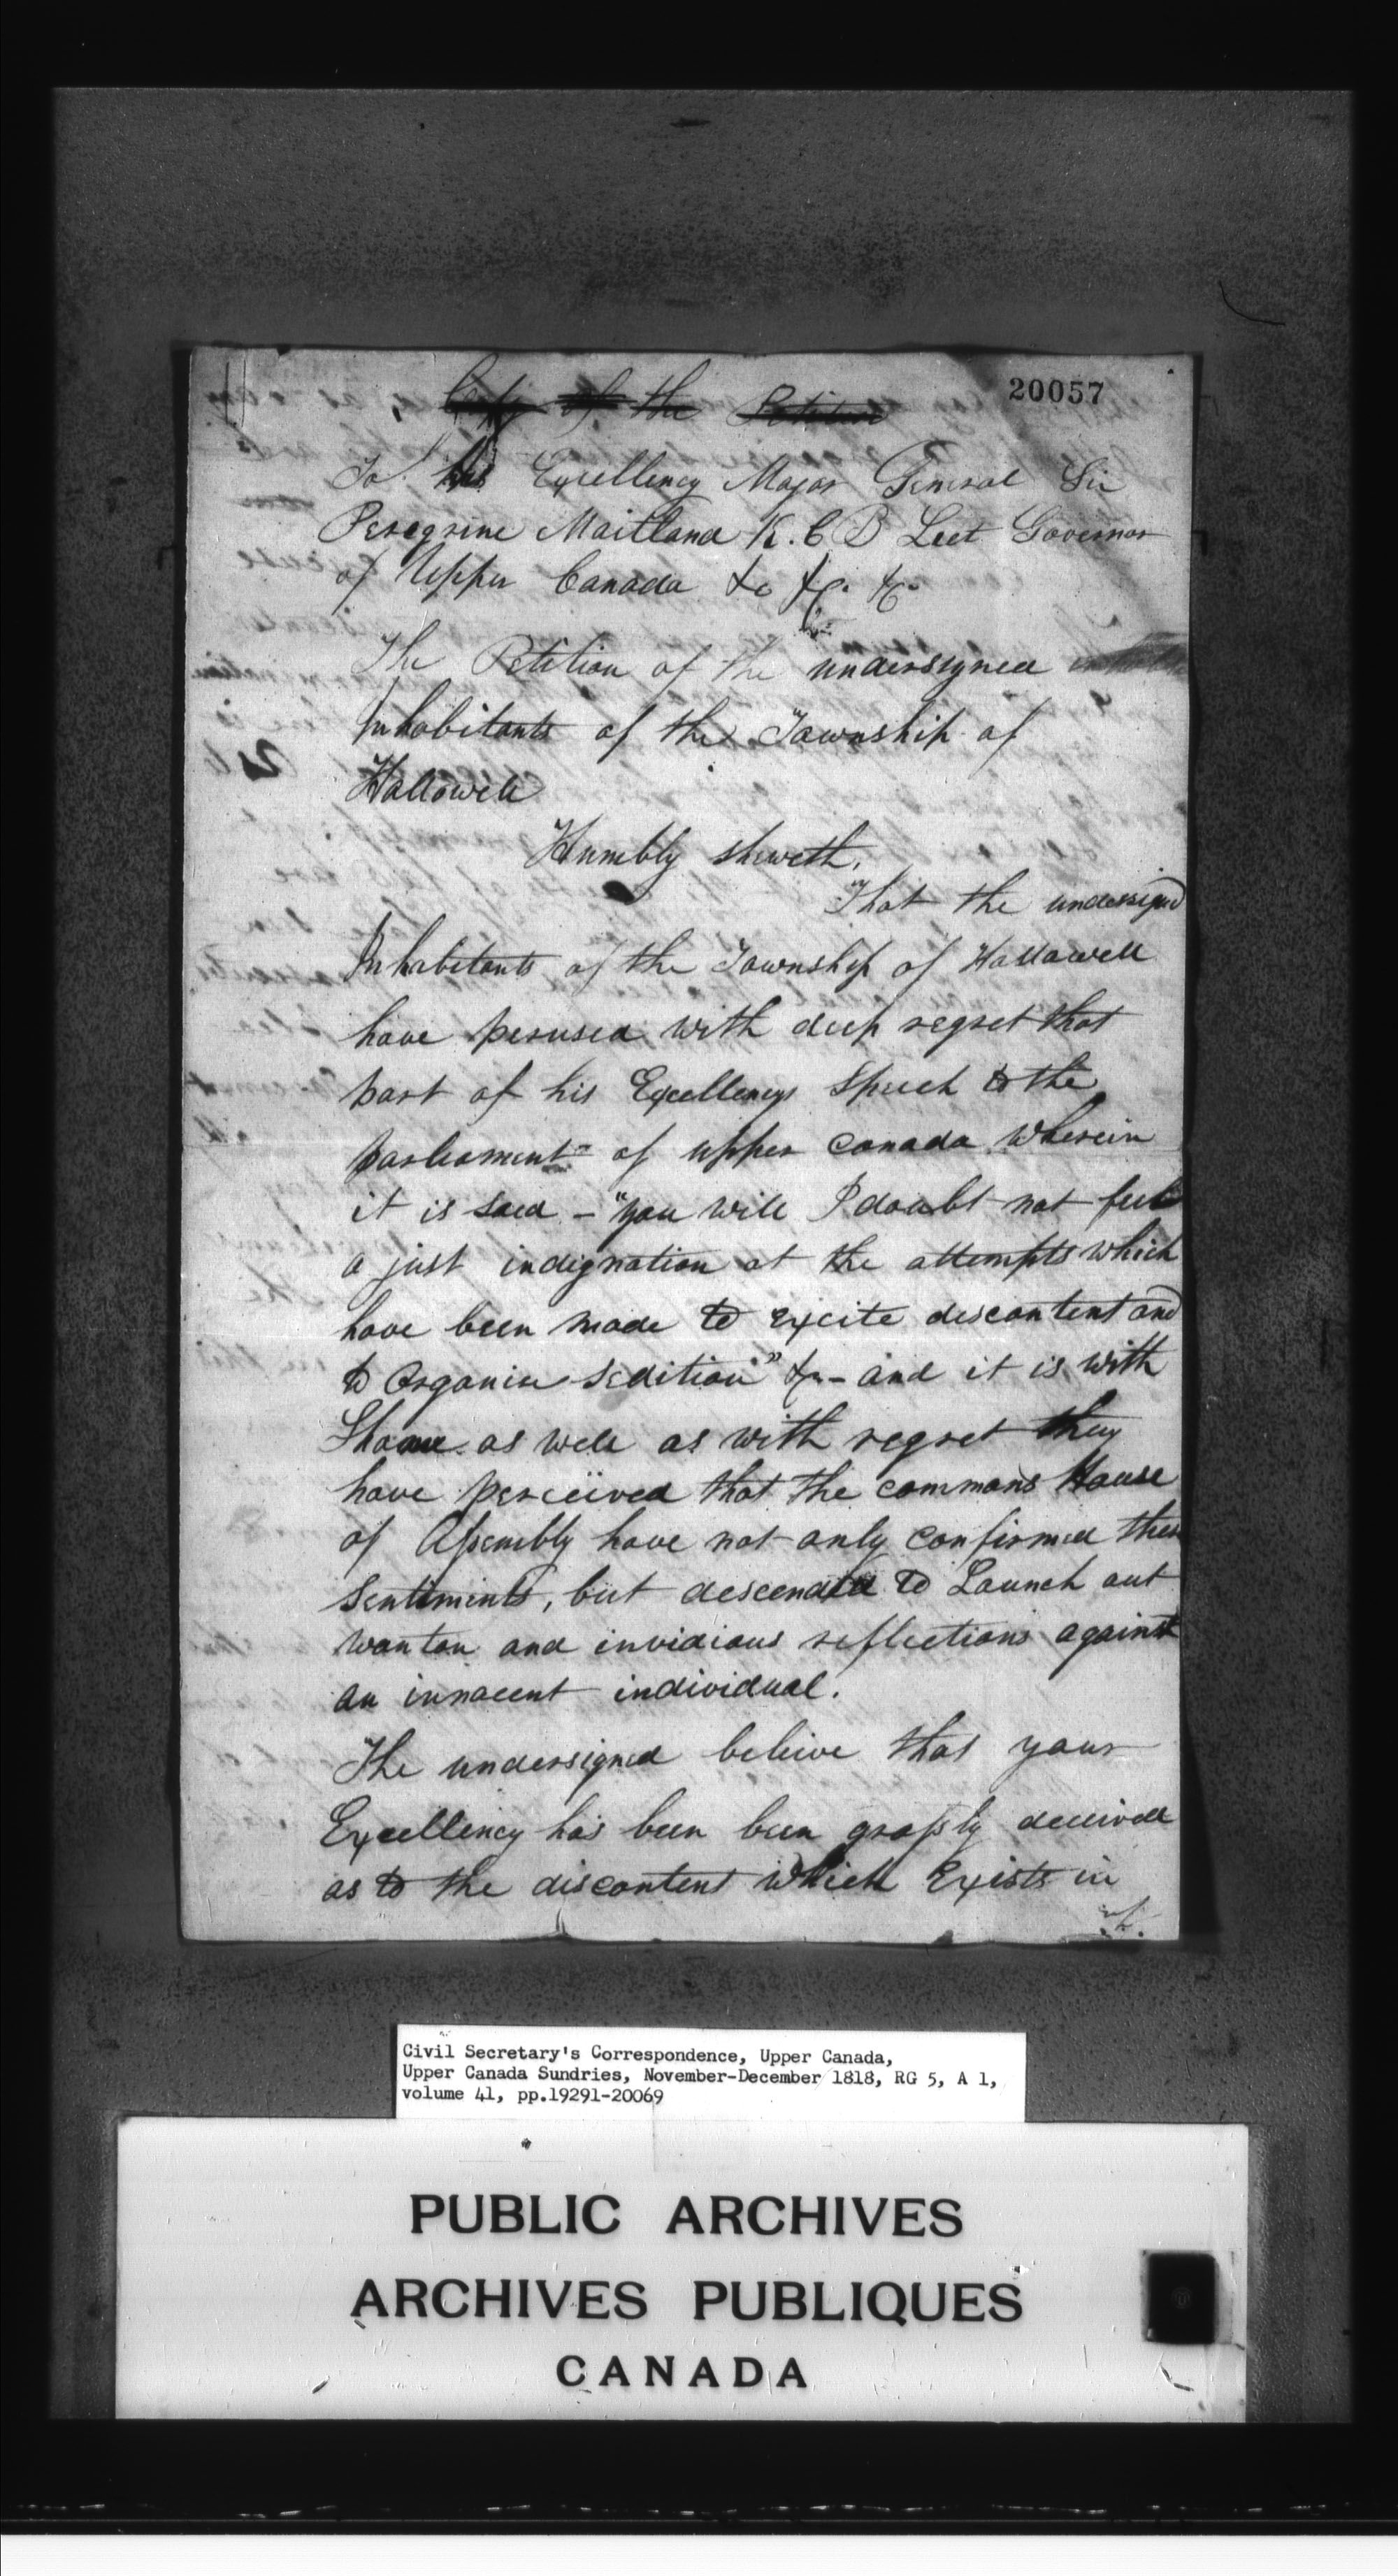 Copy of the Petition
20057
To his Excellency Major General Sir
Peregrine Maitland K. C B Leet Governor
of Upper Canada &c &c. &c.
The Petition of the undersigned
Inhabitants of the Township of
Hallowell
Humbly sheweth,
That the undersigned
Inhabitants of the Township of Hallowell
have perused with deep regret that
part of his Excellencys Speech to the
parliament of upper Canada wherein
it is said – "you will I doubt not feel
a just indignation at the attempts which
have been made to excite discontent and
to organise sedition" &c – and it is with
Shame as well as with regret they
have perceived that the commons House
of Assembly have not only confirmed these
Sentiments, but descended to Launch out
wanton and invidious reflections against
an innocent individual.
The undersigned beleive that your
Excellency has been been grossly deceived
as to the discontent which Exists in
Civil Secretary's Correspondence, Upper Canada,
Upper Canada Sundries, November-December 1818, RG 5, A 1,
volume 41, pp.19291-20069
PUBLIC ARCHIVES
ARCHIVES PUBLIQUES
CANADA